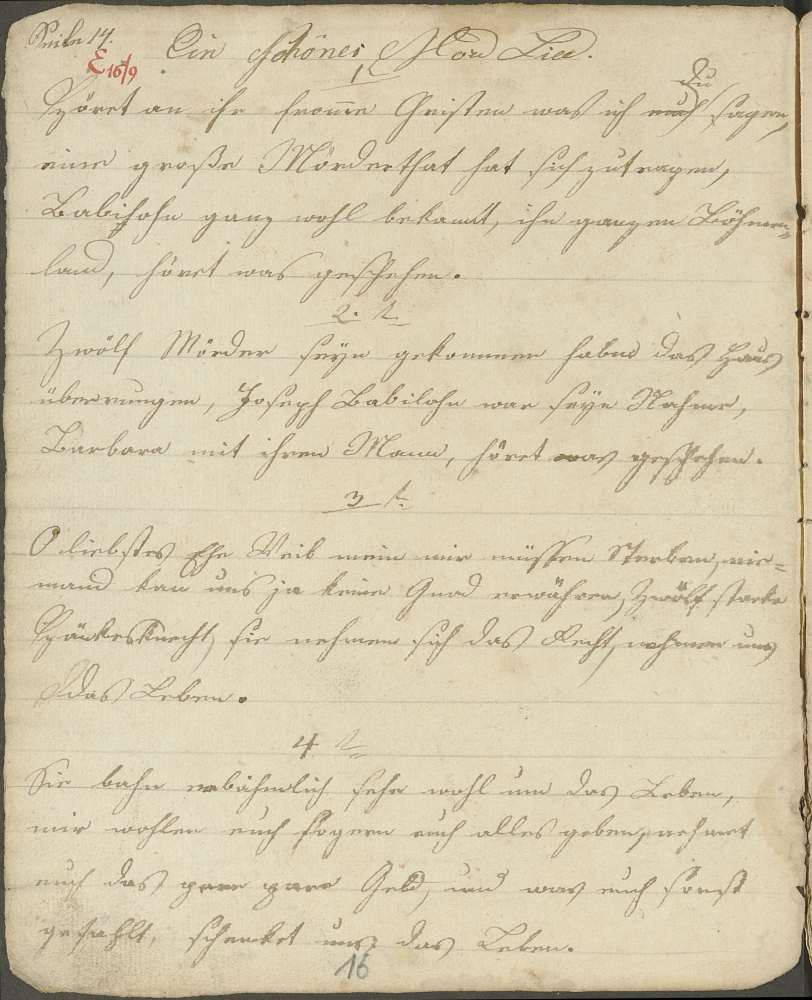 Seite 14.
E 16/9
Ein schönes Mord Lied.
1
du
Höret an ihr fromme Christen was ich euch sagen,
eine große Mörderthat hat sich zutragen,
Babilohn ganz wohl bekannt, ihr ganzen Böhmen=
land, höret was geschehen.
2. t
Zwölf Mörder seyn gekommen habns das Haus
überrungen, Joseph Babilohn war seyn Nahme,
Barbara mit ihren Mann, höret was geschehen.
3 t
O liebstes Ehe Weib mein mir müssen Sterben, nie=
mand kan uns ja keine Gnad erwähren, Zwölf starke
Hänkersknecht, sie nehmen sich das Recht, nehmen uns
das Leben.
4 t
Sie bahn erbähmlich sehr wohl um das Leben,
mir wohlen euch sogern euch alles geben, nehmet
euch das pare Geld, und was euch sonst
gefahlt, schenket uns das Leben.
16